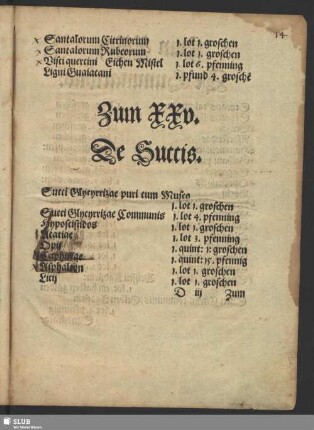 14
Santalorum Citrinorum 1. lot 1. groschen
Santalorum Rubeorum 1. lot 1. groschen
Visci quercini Eichen Mistel 1. lot 6. pfenning
Ligni Guaiacani 1. pfund 4. groschẽ
Zum XXv.
De Succis.
Succi Glycyrrizae puri cum Musco
1. lot 1. groschen
Succi Glycyrrizae Communis 1. lot 4. pfenning
Hypocistidos 1. lot 1. groschen
Acatiae 1. lot 3. pfenning
Opij 1. quint: 1. groschen
1. quint: 15. pfennig
1. lot 1. groschen
Licij 1. lot 1. groschen
D iij Zum
SLUB